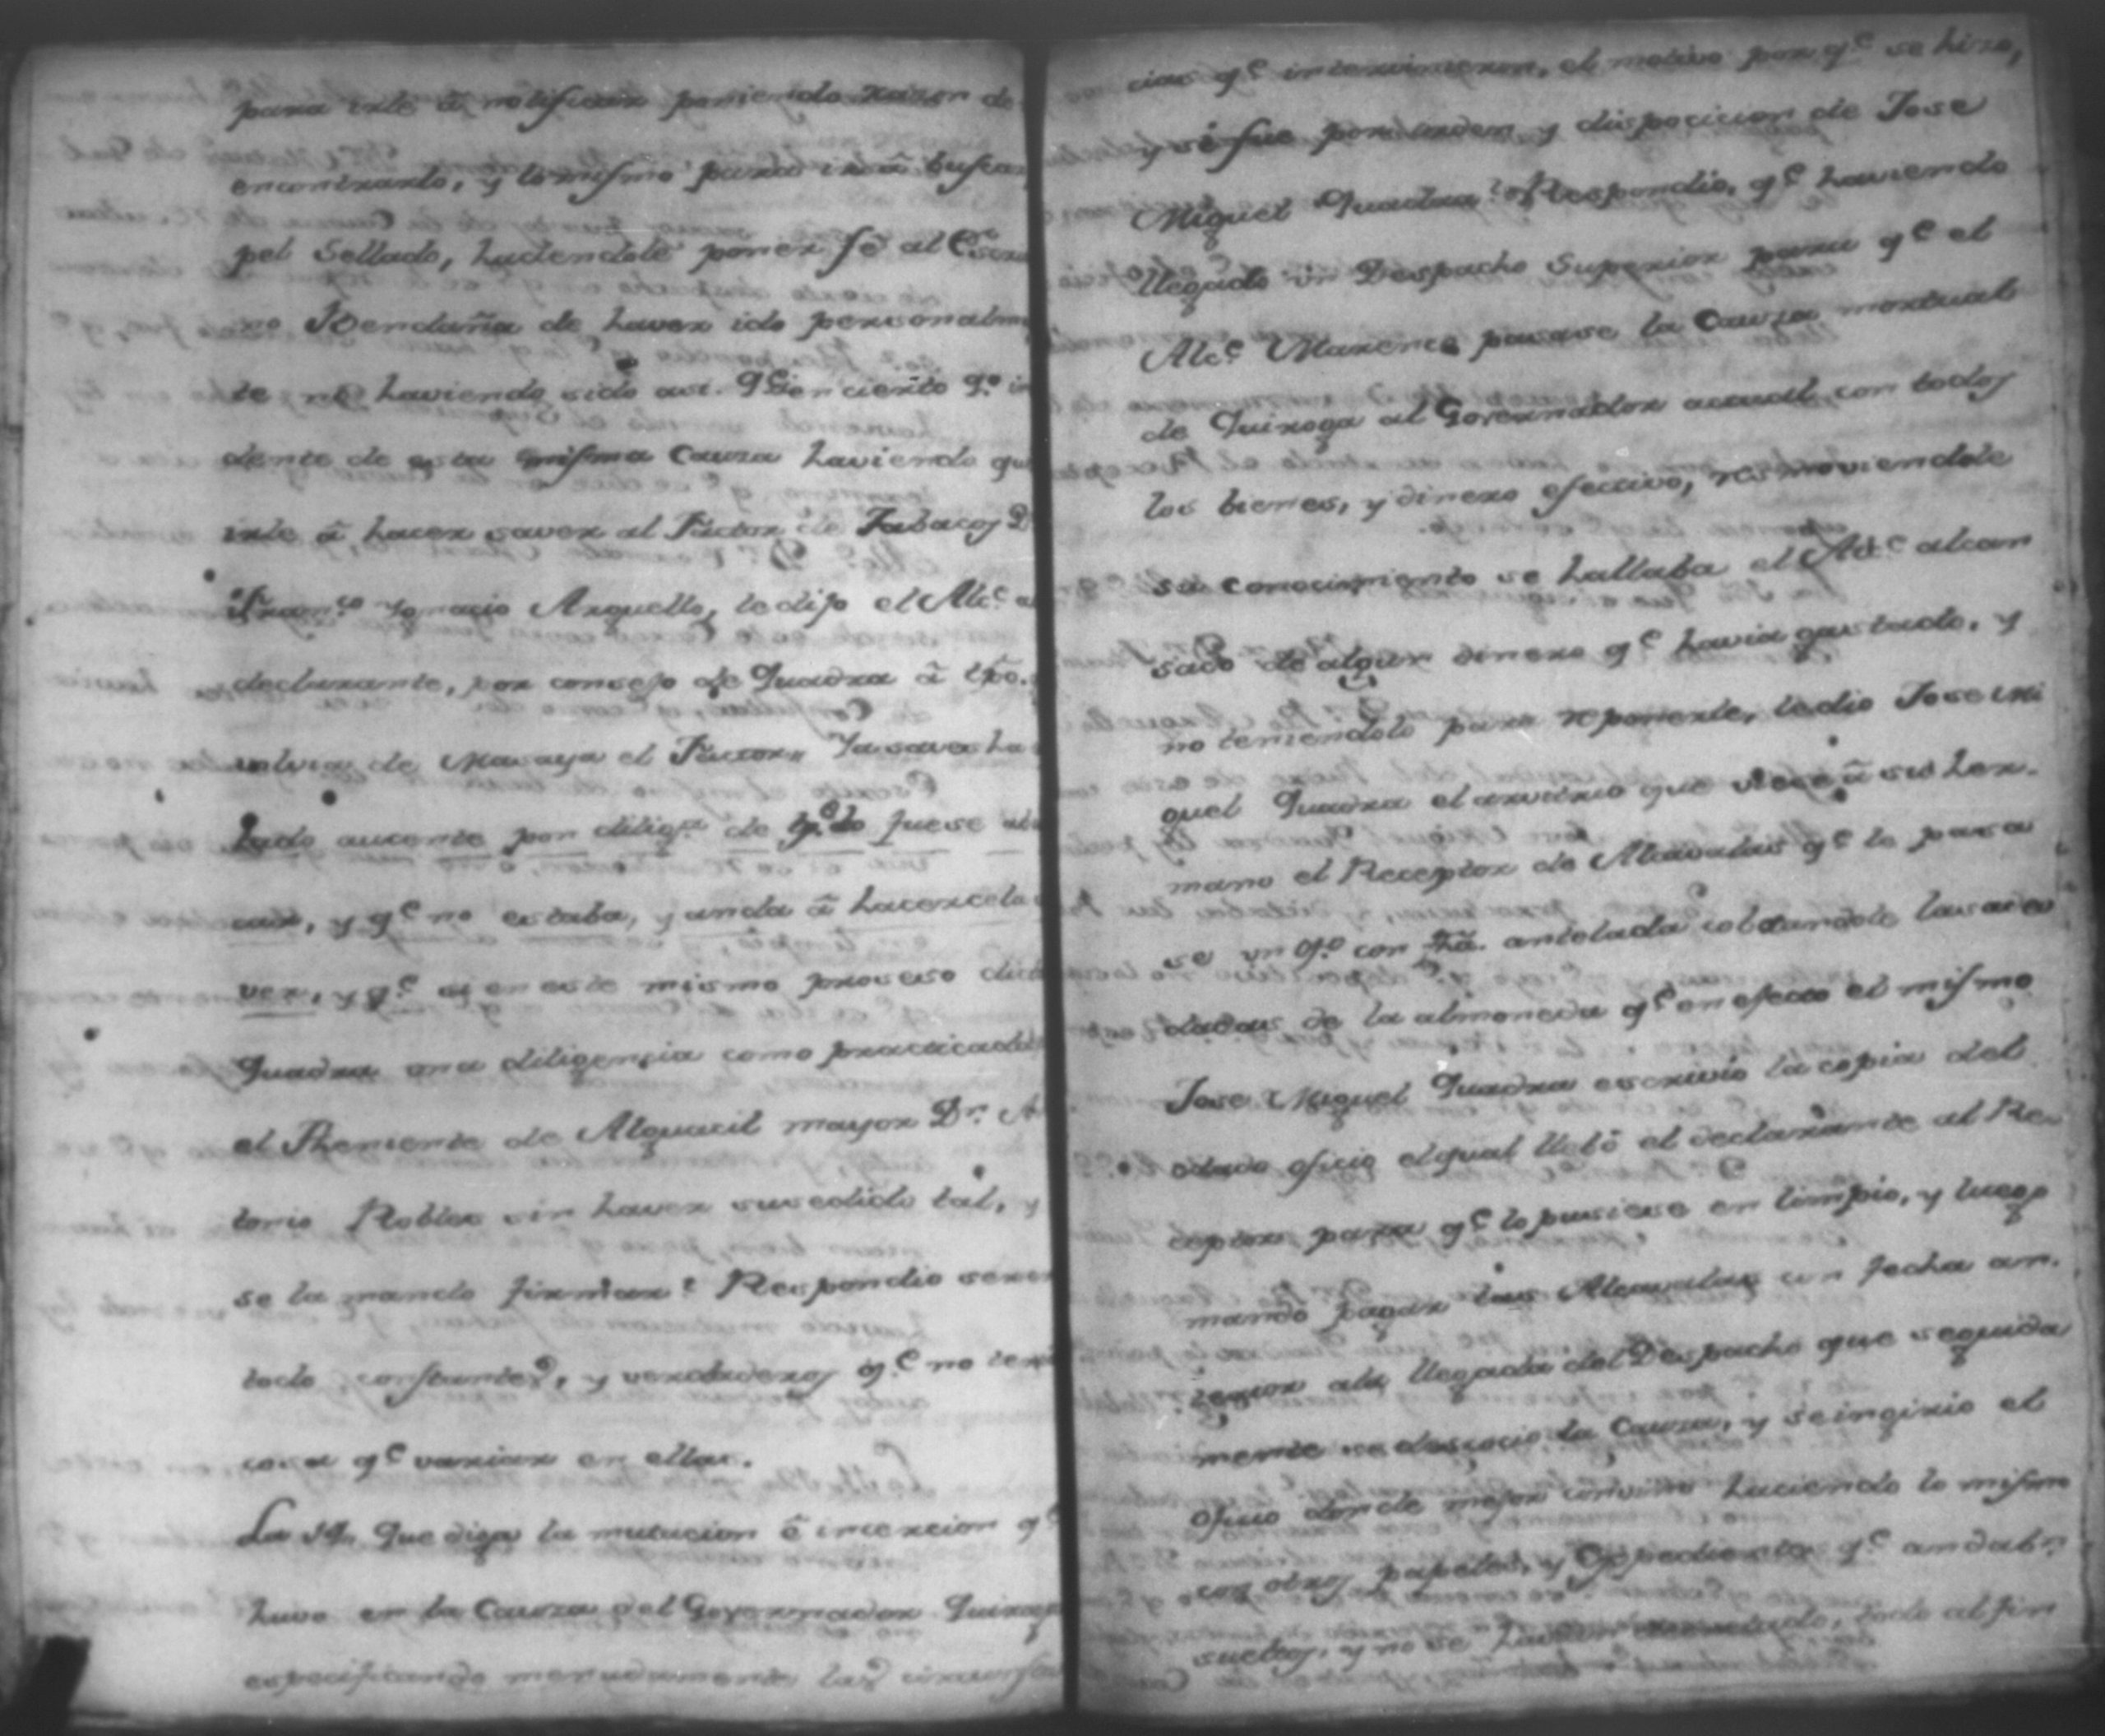 para irle â notificar poniendo razon de
encontrarlo, y lo mismo para ir â busca
pel Sellado, haciendole poner fê al Escri
no Bendaña de haver ido personalm
te no haviendo sido asi.
dente de esta misma Causa haviendo
irle â hacer saver al Factor de Tabacos D
Fran.co Ygnacio Arguello, le dijo el Alc.e
declarante, por consejo de Quadra â tpo.
volvia de Masaya el Factor,, Ya saves ha
lado aucente por dilig.a de fuese
car, y q.e no estaba, y anda â hacercela
ver, y q.e si en este mismo proseso dictô
Quadra una diligencia como practicada
el Theniente de Alguacil mayor D.n A
tonio Robles sin haver susedido tal, y
se la mando firmar? Respondio seren
todo constante, y verdadero, q.e no tenia
cosa q.e variar en ellas.
La 14. Que diga la mutacion ê incercion q.e
huvo en la Causa del Governador Quiroga
especificando menudamente las circunsta
cias q.e intervinieron, el motivo por q.e se hizo,
y si fue por orden y dispocicion de Jose
Miguel Quadra? Respondio, q.e haviendo
llegado un Despacho Superior para q.e el
Alc.e Marenco pasase la Causa mortual
de Quiroga al Governador actual con todos
los bienes, y dinero efectivo, removiendole
su conocimiento se hallaba el Alc.e alcan
sado de algun dinero q.e havia gastado, y
no teniendolo para reponerle, le dio Jose Mi
guel Quadra el arvitrio que viese â su her-
mano el Receptor de Alcavalas q.e le pasa
se un of.o con fha. antelada cobrandole las
de la almoneda q.e en efecto el mismo
Jose Miguel Quadra escrivio la copia del
citado oficio el qual llebô el declarante al Re-
ceptor para q.e lo pusiese en limpio, y luego
mando pagar las Alcavalas con fecha an-
terior ala llegada del Despacho que seguida
mente se descocio la Causa, y se ingirio el
Oficio donde mejor convino haciendo lo mismo
con otros papeles, y Expedientes q.e andab.n
sueltos, y no se havian todo al fin